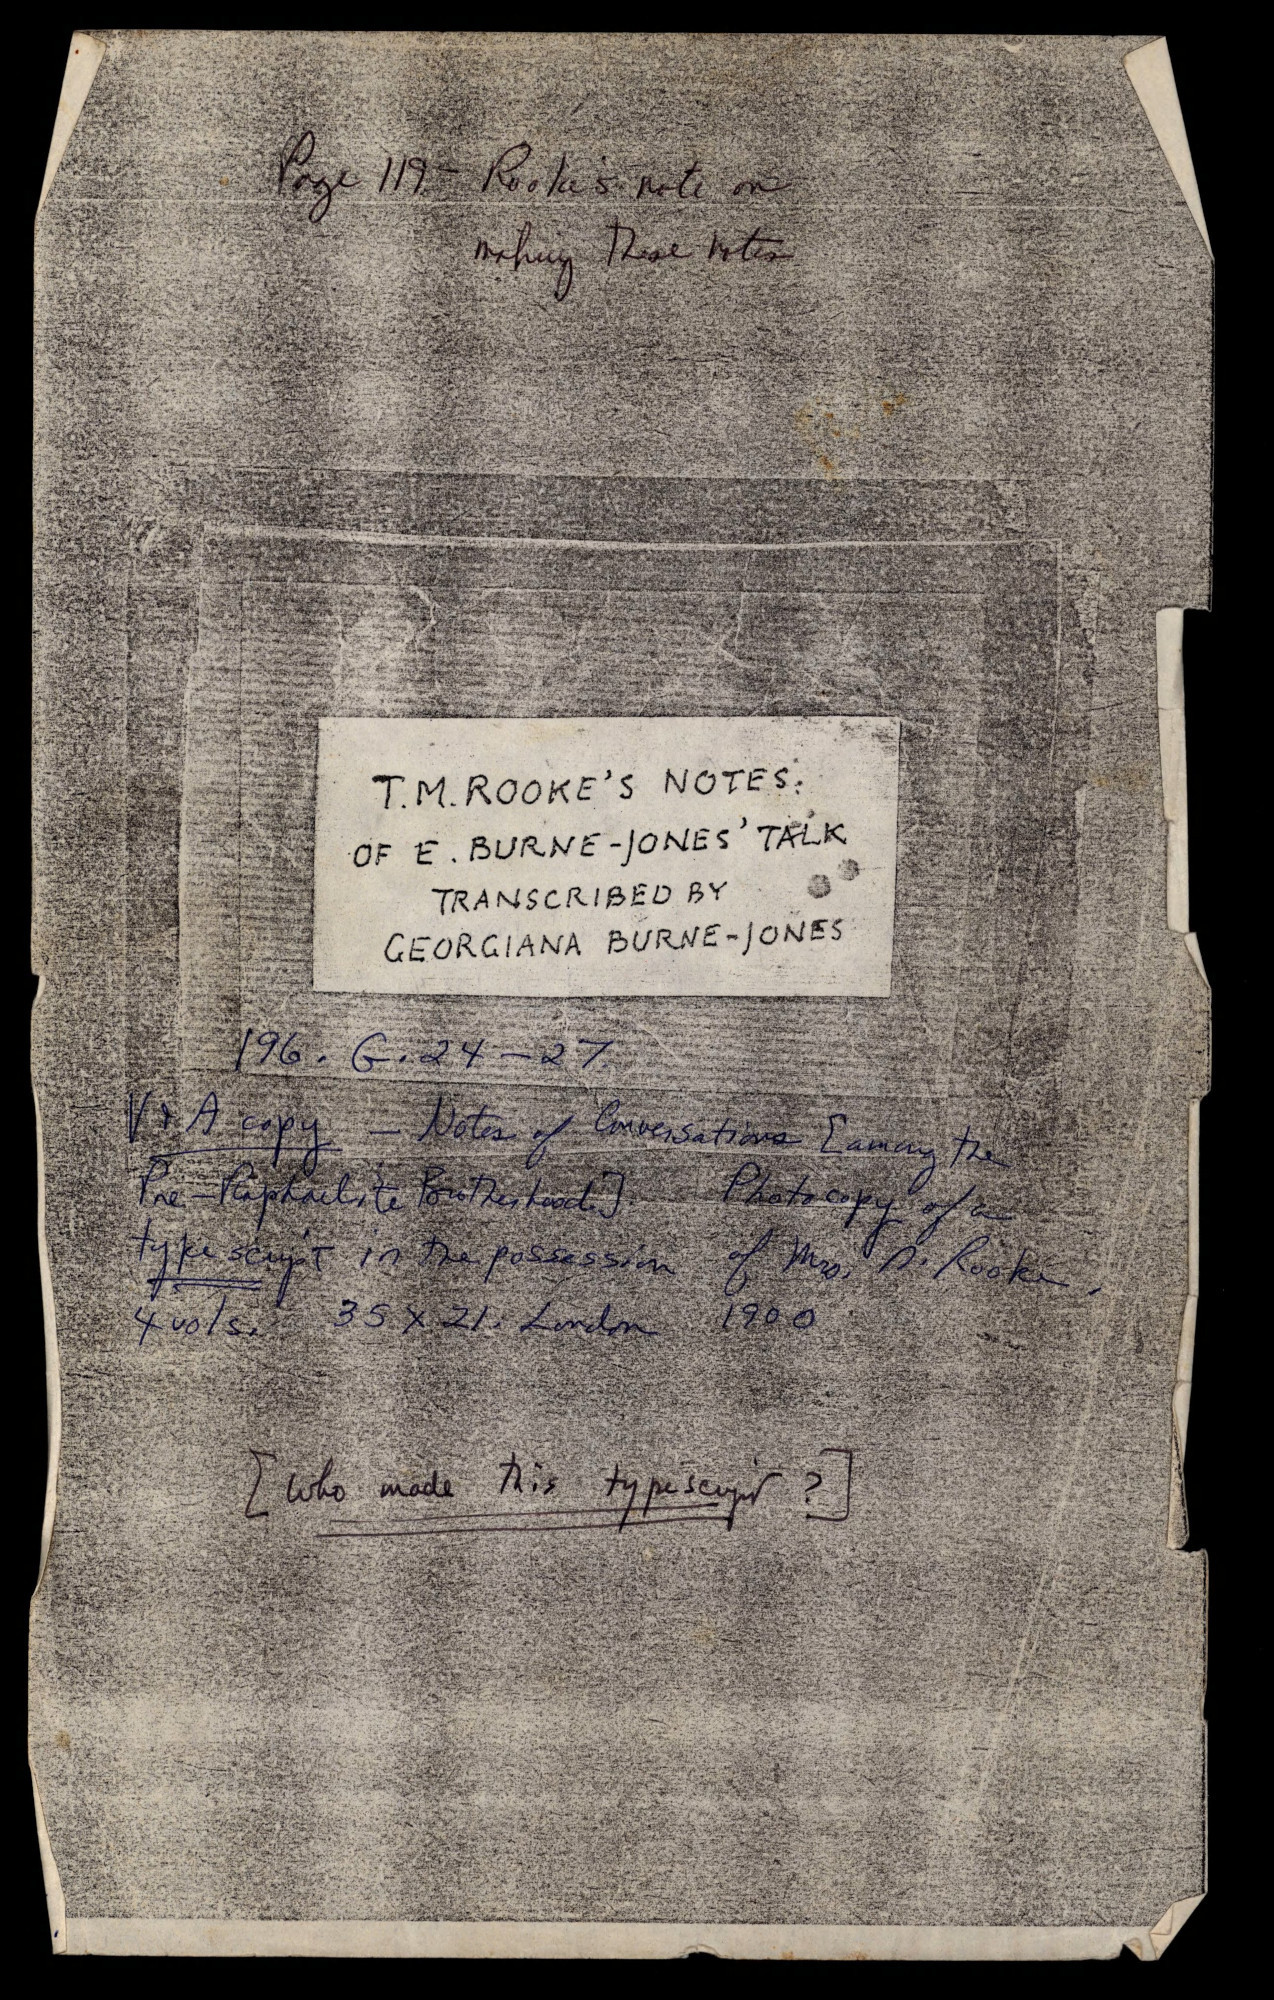 Page 119 - Rooke's note on
making these notes
T.M. ROOKE'S NOTES.
OF E. BURNE-JONES' TALK
TRANSCRIBED BY
GEORGIANA BURNE-JONES
196. G. 24 - 27.
V & A copy — Notes of Conversations [among the
Pre-Raphaelite Brotherhood.] Photocopy of a
typescript in the possession of Mrs. N. Rooke.
4 vols. 35 x 21. London 1900
[who made this typescript?]